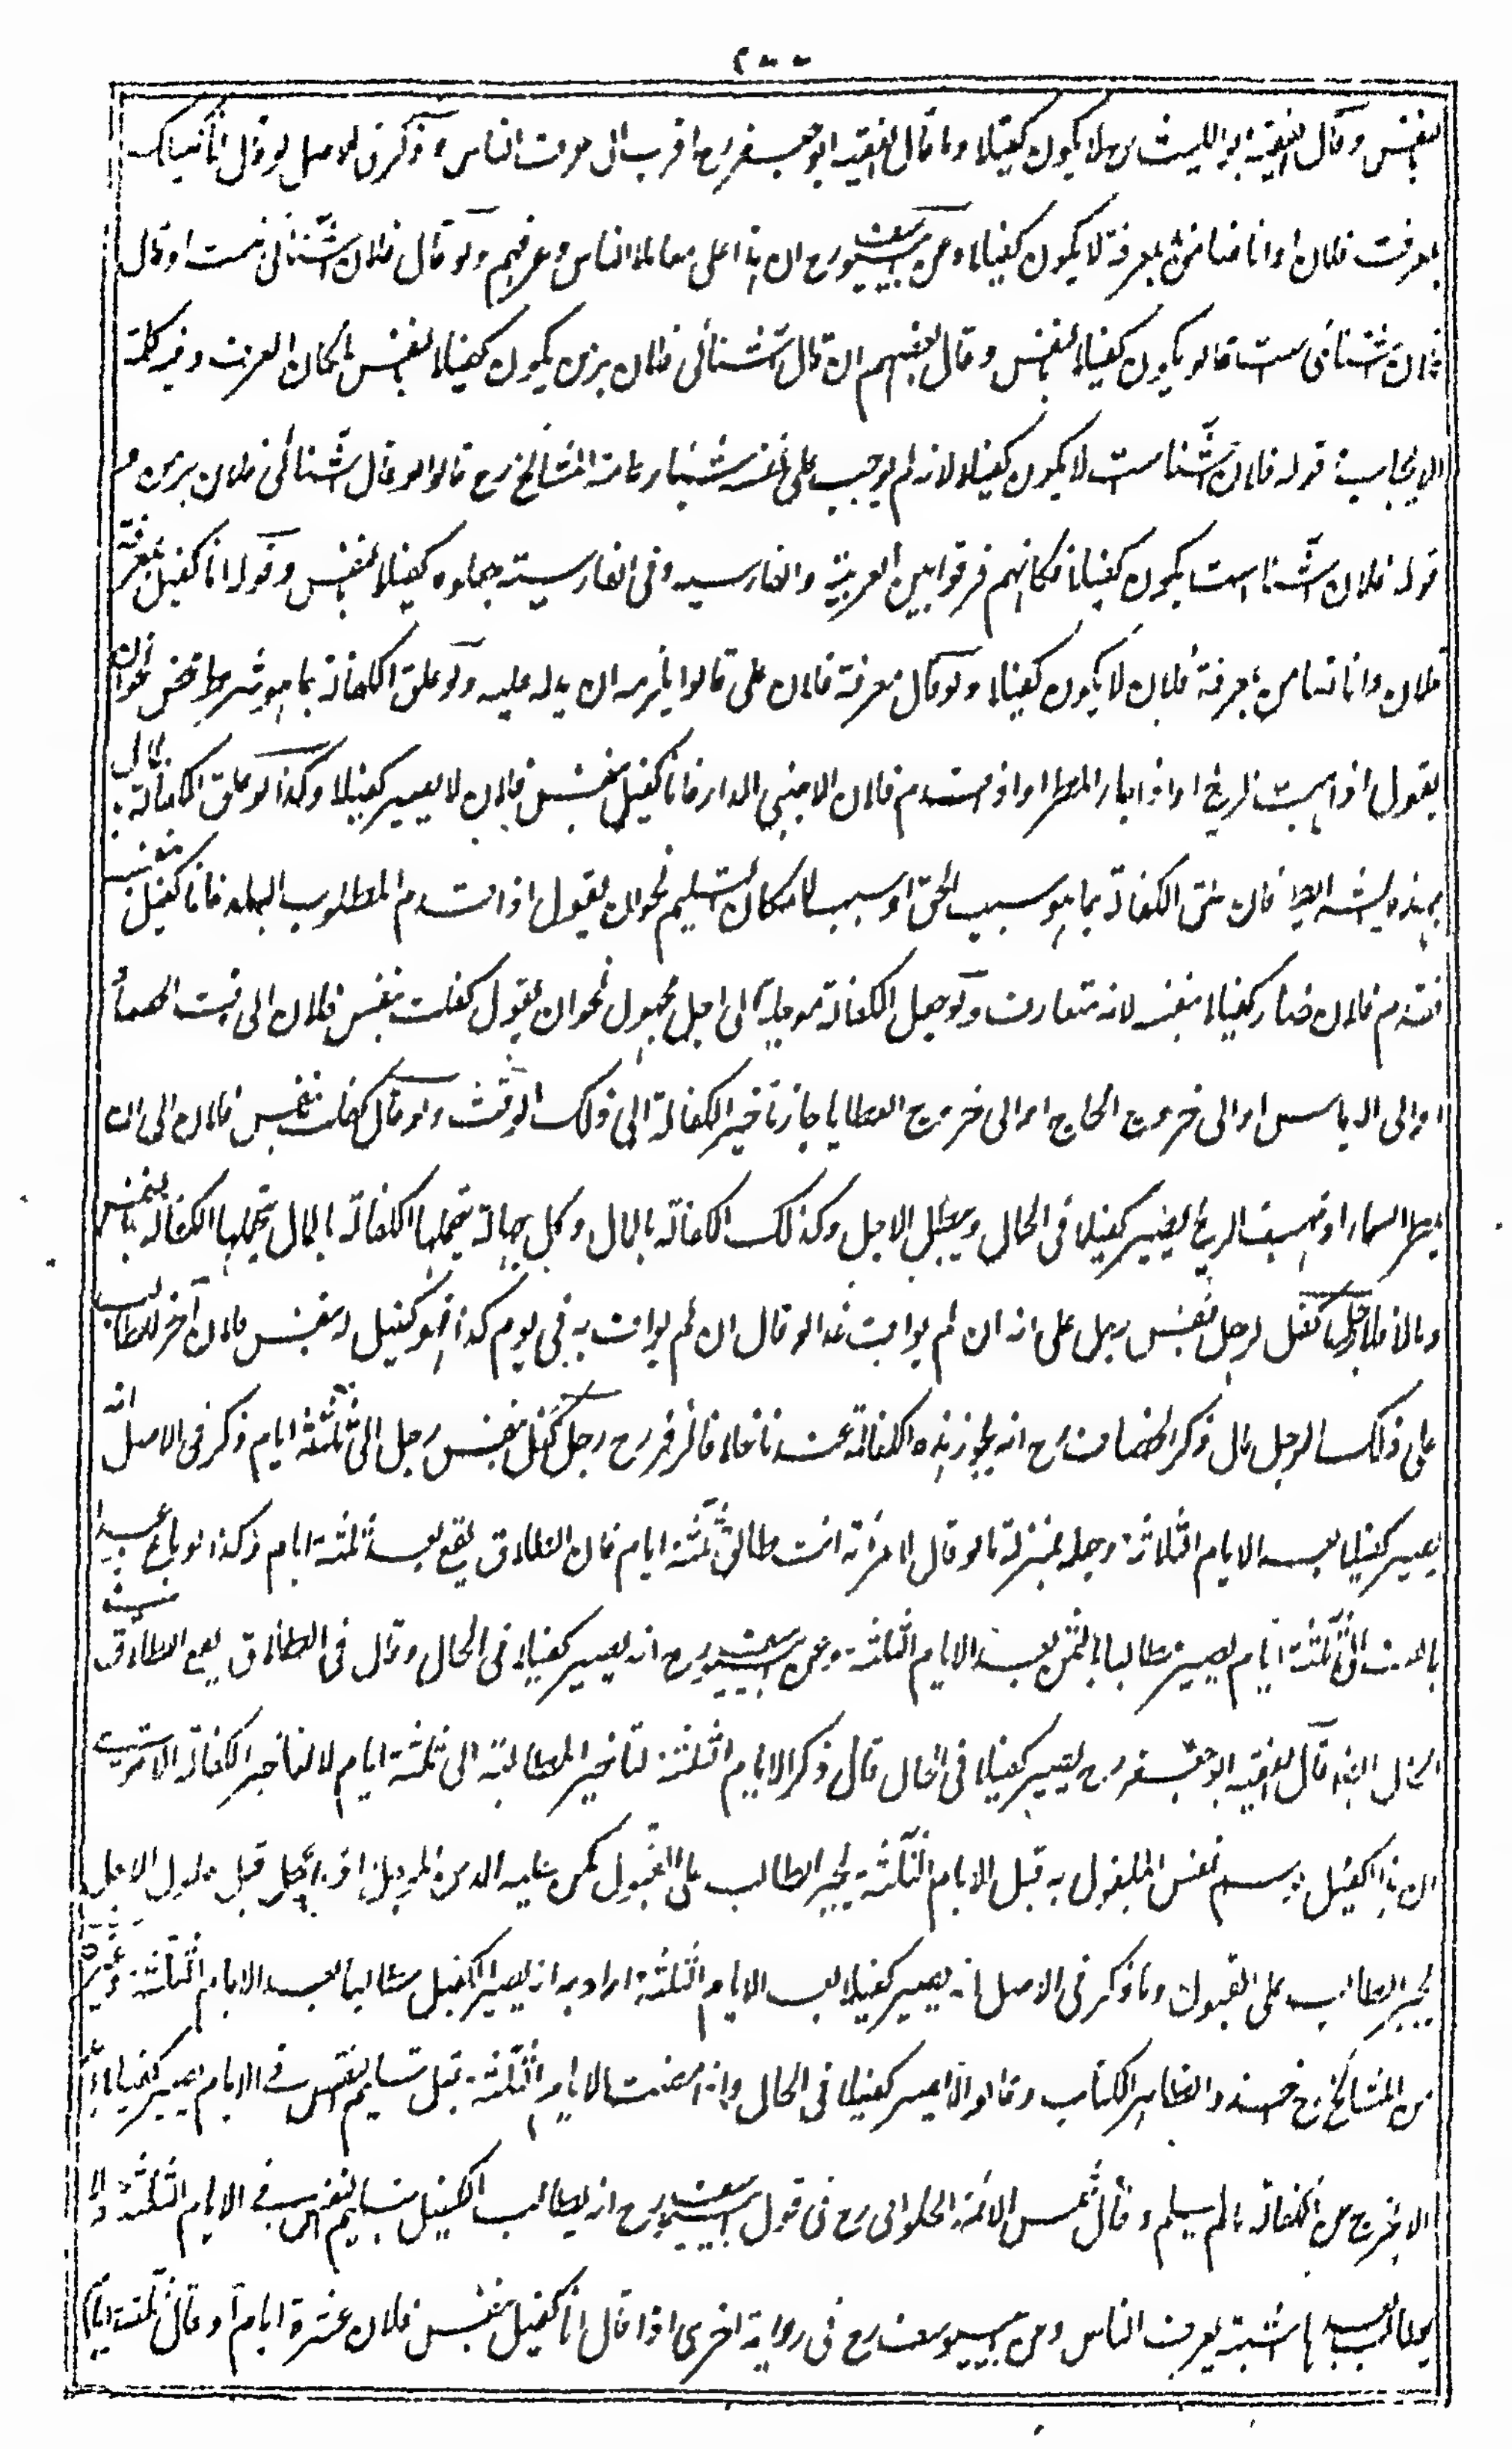 ٢٠٠
بنفس وقال الفقيه ابو الليث رح لا يكون كفيلا وما قال الفقيه ابو جعفر رح اقرب الى عرف الناس وذكر فى الاصل لو قال انا كفيلك
بمعرفت فلان او انا ضامن بمعرفة لا يكون كفيلا وعن ابى يوسف رح ان هذا على معاملة الناس وعرفهم ولو قال فلان آشناى منست او قال
فلان آشناى ست قالوا يكون كفيلا بنفس وقال بعضهم ان قال آشنائى فلان بر من يكون كفيلا بنفس لمكان العرف وفيه كلمة
الايجاب قوله فلان آشناست لا يكون كفيلا لانه لم يوجب على نفسه شيئا وعامة المشائخ رح قالوا لو قال آشنائى فلان بر من و
قوله فلان آشناست يكون كفيلا فكانهم فرقوا بين العربية والفارسيه وفى الفارسية جعلوه كفيلا بنفس وقوله انا كفيل بمعرفة
فلان وانا ضامن بمعرفة فلان لا يكون كفيلا ولو قال معرفة فلان على قالوا يلزمه ان يدله عليه ولو علق الكفالة بما هو شرط محض نحو ان
يقول اذا هبت الريح او اذا جاء المطر او اذا قدم فلان الاجنبى الدار فانا كفيل بنفس فلان لا يصير كفيلا وكذا لو علق الكفالة بمال
بهذه الشرائط فان علق الكفالة بما هو سبب الحق او سبب لامكان التسليم نحو ان يقول اذا قدم المطلوب البلد فانا كفيل بنفسه
فقدم فلان صار كفيلا بنفسه لانه متعارف ولو جعل الكفالة مؤجلة الى اجل مجهول نحو ان يقول كفلت بنفس فلان الى وقت الحصاد
او الى الدياس او الى خروج الحاج او الى خروج العطايا جاز تاخير الكفالة الى ذلك الوقت ولو قال كفلت بنفس فلان الى ان
يمطر السماء او تهب الريح يصير كفيلا فى الحال ويبطل الاجل وكذلك الكفالة بالمال وكل جهالة تحملها الكفالة بالمال تحملها الكفالة بالنفس
وما لا فلا رجل كفل لرجل بنفس رجل على انه ان لم يواف به غدا او قال ان لم يواف به فى يوم كذا فهو كفيل بنفس فلان آخر للطالب
على ذلك الرجل مال ذكر الخصاف رح انه يجوز هذه الكفالة عندنا خلافا لزفر رح رجل كفل بنفس رجل الى ثلثة ايام ذكر فى الاصل انه
يصير كفيلا بعد الايام الثلاثة وجعله بمنزلة ما لو قال لامرأته انت طالق الى ثلثة ايام فان الطلاق يقع بعد ثلثة ايام وكذا لو باع عبدا
بالف الى ثلثة ايام يصير مطالبا بالثمن بعد الايام الثلثة وعن ابى يوسف رح انه يصير كفيلا فى الحال وقال فى الطلاق يقع الطلاق
فى الحال ايضا قال الفقيه ابو جعفر رح يصير كفيلا فى الحال قال ذكر الايام الثلثة لتاخير المطالبة الى ثلثة ايام لا لتاخير الكفالة الا ترى
ان هذا الكفيل لو سلم نفس المكفول به قبل الايام الثلثة يجبر الطالب على القبول كمن عليه الدين المؤجل اذا عجل قبل حلول الاجل
يجبر الطالب على القبول وما ذكر فى الاصل انه يصير كفيلا بعد الايام الثلثة اراد به انه يصير الكفيل مطالبا بعد الايام الثلثة وغيره
من المشائخ رح اخذوا بظاهر الكتاب وقالوا لا يصير كفيلا فى الحال واذا مضت الايام الثلثة قبل تسليم النفس فى الايام يصير كفيلا ابدا
لا يخرج عن الكفالة ما لم يسلم وقال شمس الائمة الحلوائى رح فى قول ابى يوسف رح انه يطالب الكفيل بتسليم النفس فى الايام الثلثة ولا
يطالب بعدها اشبه بعرف الناس وعن ابى يوسف رح فى رواية اخرى اذا قال انا كفيل بنفس فلان عشرة ايام او قال ثلثة ايام